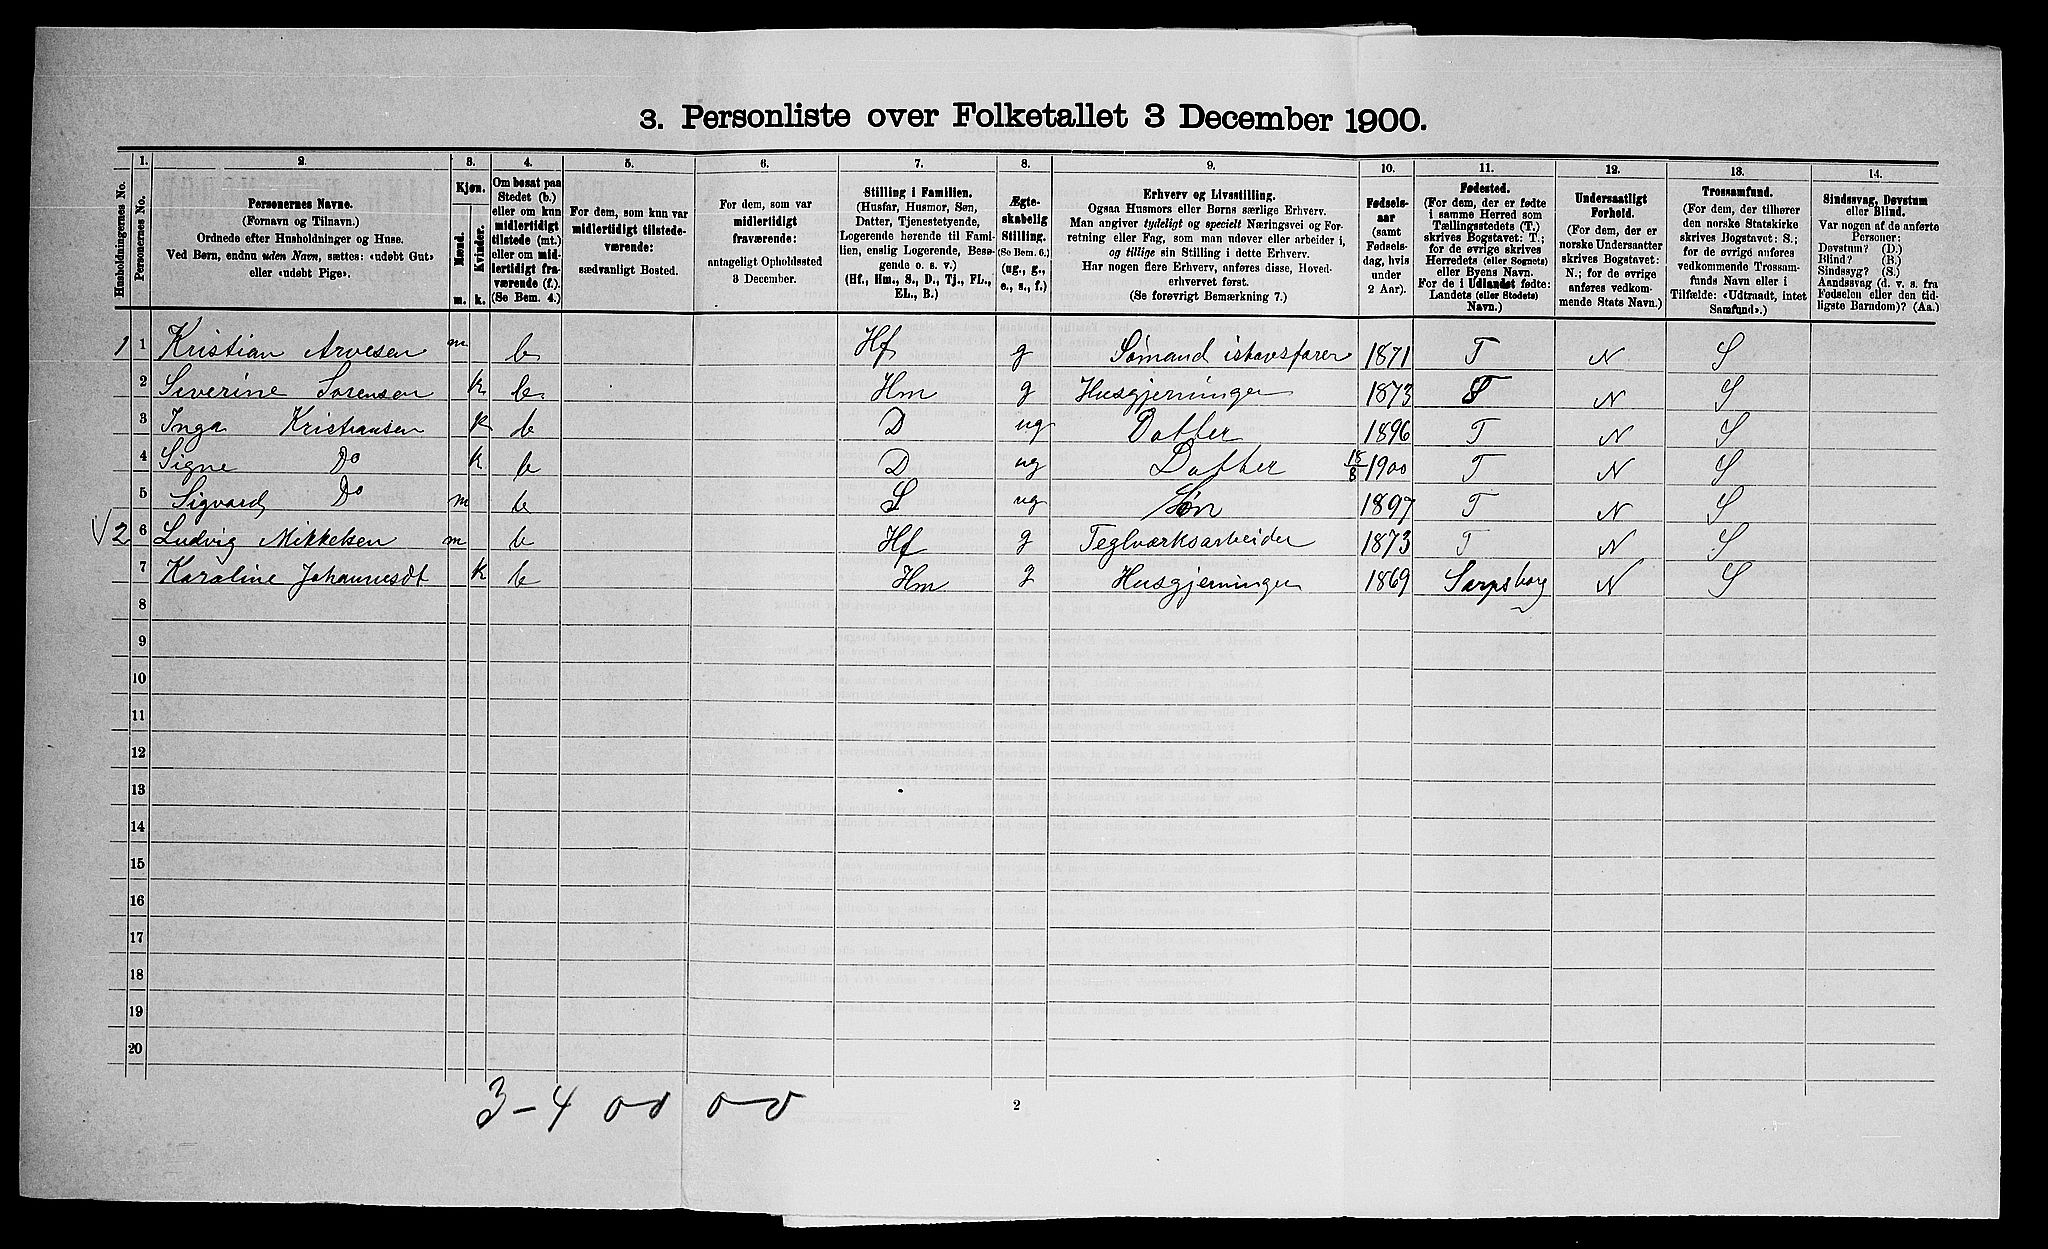 3. Personliste over Folketallet 3 December 1900.
Husholdningernes No.
1.
Personernes No.
2.
Personernes Navne.
(Fornavn og Tilnavn.)
Ordnede efter Husholdninger og Huse.
Ved Børn, endnu uden Navn, sættes: «udøbt Gut»
eller «udøbt Pige».
3.
Kjøn.
Mænd.
Kvinder.
m.
k.
4.
Om bosat paa
Stedet (b.)
eller om kun
midlertidigt
tilstede (mt.)
eller om mid-
lertidigt fra-
værende (f.).
(Se Bem. 4.)
5.
For dem, som kun var
midlertidigt tilstede-
værende:
sædvanligt Bosted.
6.
For dem, som var
midlertidigt
fraværende:
antageligt Opholdssted
3 December.
7.
Stilling i Familien.
(Husfar, Husmor, Søn,
Datter, Tjenestetyende,
Logerende hørende til Fami-
lien, enslig Logerende, Besø-
gende o. s. v.)
(Hf., Hm., S., D., Tj., FL.,
EL., B.)
8.
Ægte-
skabelig
Stilling.
(Se Bem. 6.)
(ug., g.,
e., s., f.)
9.
Erhverv og Livsstilling.
Ogsaa Husmors eller Børns særlige Erhverv.
Man angiver tydeligt og specielt Næringsvei og For-
retning eller Fag, som man udøver eller arbeider i,
og tillige sin Stilling i dette Erhverv.
Har nogen flere Erhverv, anføres disse, Hoved-
erhvervet først.
(Se forøvrigt Bemærkning 7.)
10.
Fødsels-
aar
(samt
Fødsels-
dag, hvis
under
2 Aar).
11.
Fødested.
(For dem, der er fødte
i samme Herred som
Tællingsstedets (T.)
skrives Bogstavet: T.;
for de øvrige skrives
Herredets (eller Sognets)
eller Byens Navn.
For de i Udlandet fødte:
Landets (eller Stedets)
Navn.)
12.
Undersaatligt
Forhold.
(For dem, der er
norske Undersaatter
skrives Bogstavet:
N.; for de øvrige
anføres vedkom-
mende Stats Navn.)
13.
Trossamfund.
(For dem, der tilhører
den norske Statskirke
skrives Bogstavet: S.;
for de øvrige anføres
vedkommende Trossam-
funds Navn eller i
Tilfælde: «Udtraadt, intet
Samfund».)
14.
Sindssvag, Døvstum
eller Blind.
Var nogen af de anførte
Personer:
Døvstum? (D.)
Blind? (B.)
Sindssyg? (S.)
Aandssvag (d. v. s. fra
Fødselen eller den tid-
ligste Barndom)? (Aa.)
1 1 Kristian Arvesen m b Hf g Sømand ishavsfarer 1871 T N S
2 Severine Sorensen k b Hm g Husgjerninger 1873 T N S
3 Inga Kristiansen k b D ug Datter 1896 T N S
4 Signe Do k b D ug Datter 15/8 1900 T N S
5 Sigvard Do m b S ug Søn 1897 T N S
√ 2 6 Ludvig Mikkelsen m b Hf g Teglværksarbeider 1873 T N S
7 Karoline Johannesdt k b Hm g Husgjerninger 1869 Sarpsborg N S
8
9
10
11
12
13
14
15
16
17
18
19
20
3 - 4
2